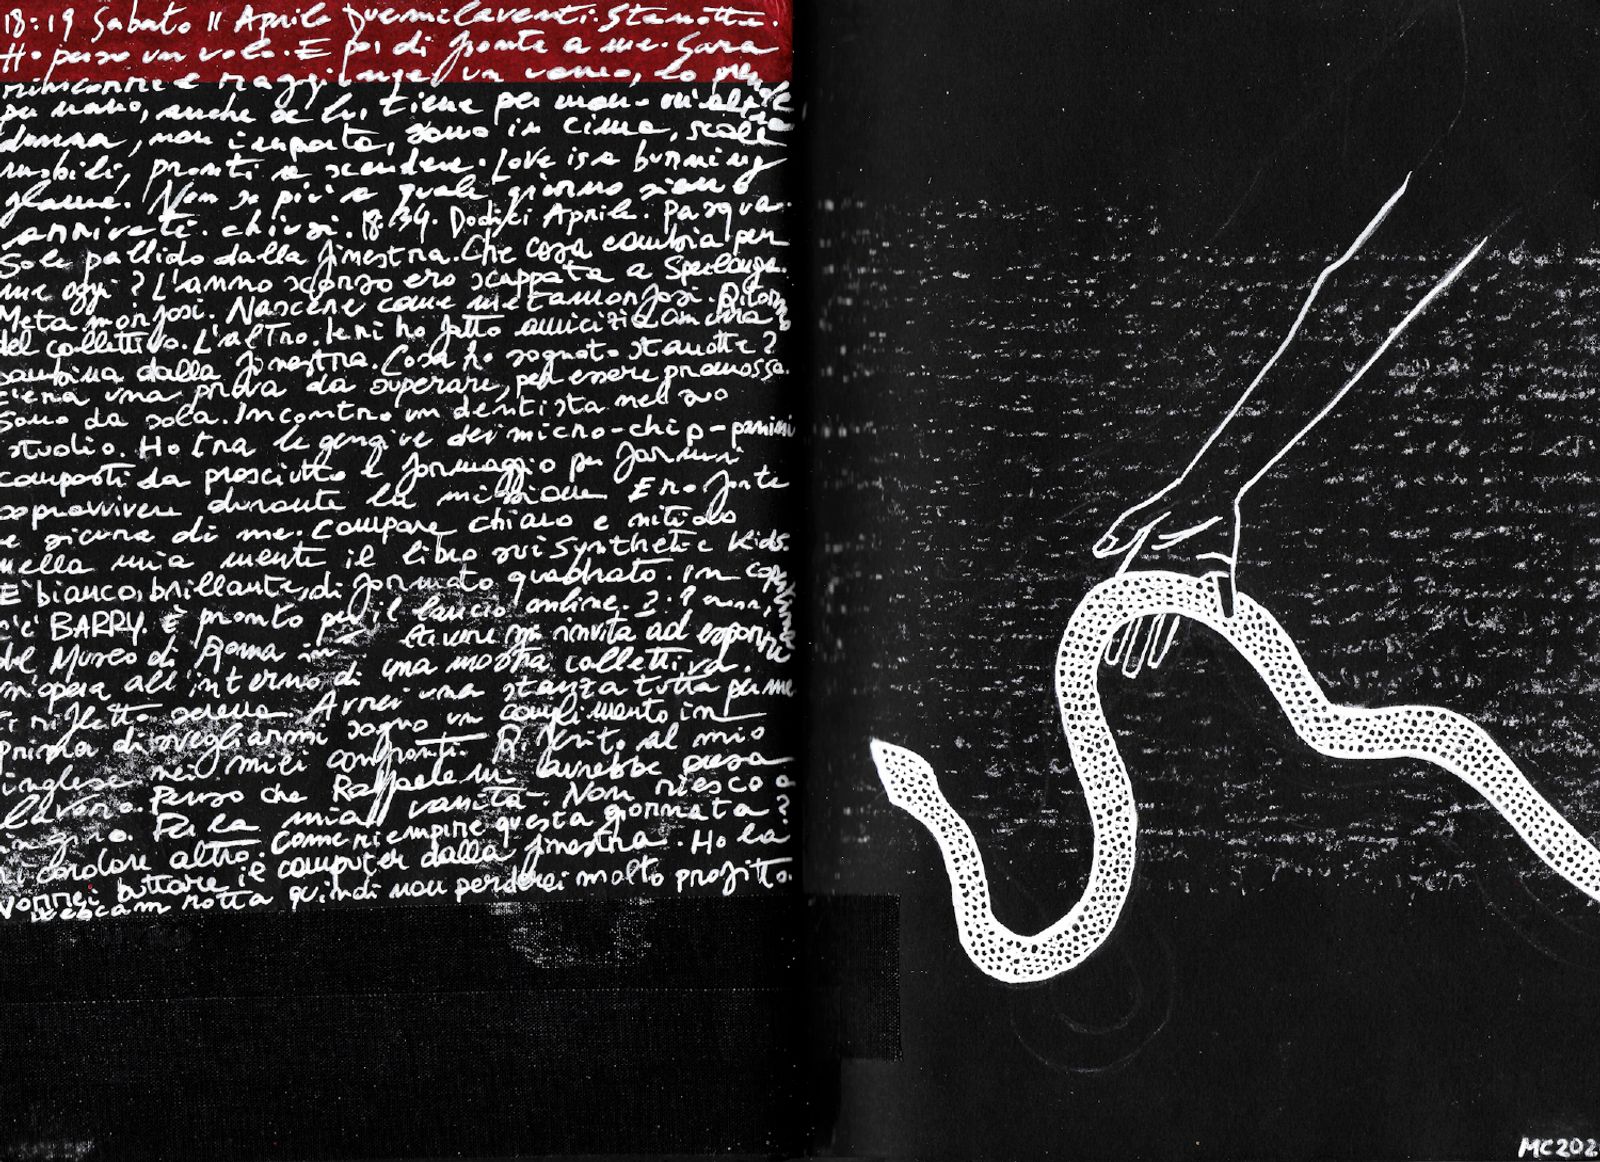 18:19 Sabato 11 Aprile Duemilaventi. Stanotte.
Ho perso un volo. E poi di fronte a me. Sara
rincorre e raggiunge un uomo, lo prende
per mano, anche se lui tiene per mano un'altra
donna, non importa, sono in cima, scale
mobili, pronti a scendere. Love is a burning
flame. Non so più a quale giorno siamo
arrivati. chiusi. 18:34. Dodici Aprile. Pasqua.
Sole pallido dalla finestra. Che cosa cambia per
me oggi? L'anno scorso ero scappata a Sperlonga.
Metamorfosi. Nascere come metamorfosi. Ritorno
del collettivo. L'altro. Ieri ho fatto amicizia con una
bambina dalla finestra. Cosa ho sognato stanotte?
c'era una prova da superare, per essere promossa.
Sono da sola. Incontro un dentista nel suo
studio. Ho tra le gengive dei micro-chip-panini
composti da prosciutto e formaggio per farmi
sopravvivere durante la missione. Ero forte
e sicura di me. Compare chiaro e nitido
nella mia mente il libro sui Synthetic Kids.
È bianco, brillante, di formato quadrato. In copertina
c'è BARRY. È pronto per il lancio online.
del Museo di Roma in mi invita ad esporre
un'opera all'interno di una mostra collettiva.
Ci rifletto Avrei una stanza tutta per me
prima di svegliarmi sogno un complimento in
inglese nei miei confronti. Riferito al mio
lavoro. Penso che Raffaele mi avrebbe presa
in giro. Per la mia vanità. Non riesco a
ricordare altro. Come riempire questa giornata?
Vorrei buttare il computer dalla finestra. Ho la
webcam rotta quindi non perderei molto profitto.